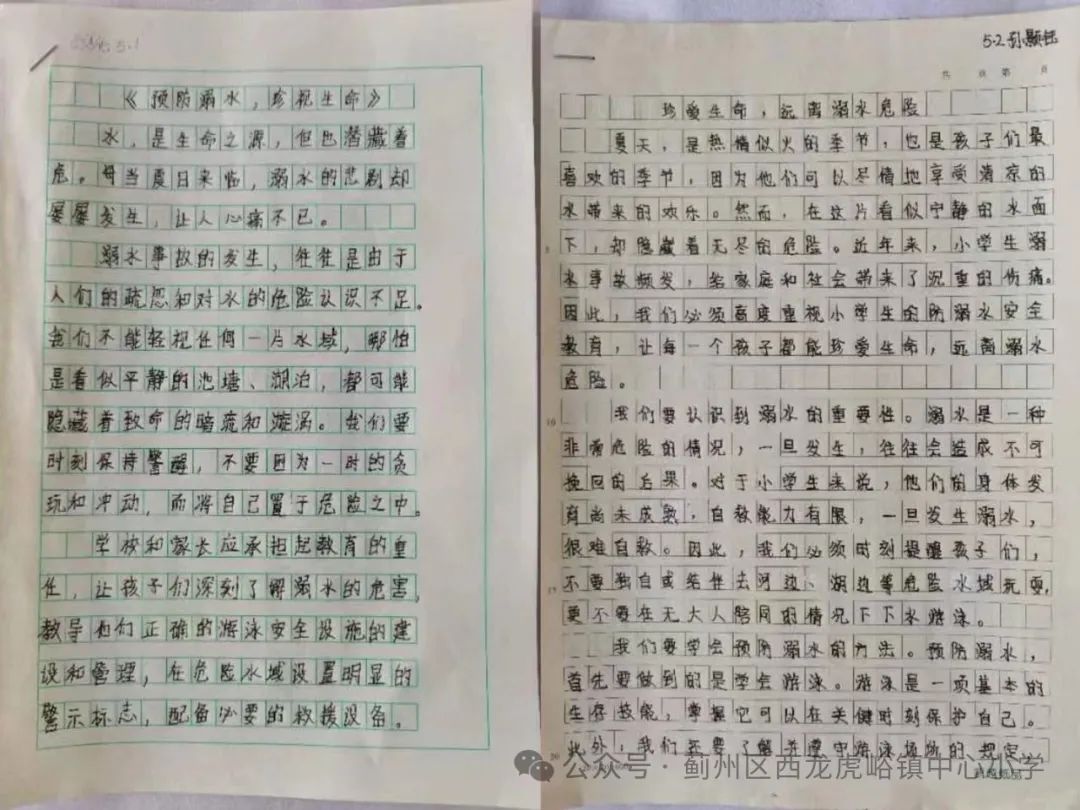 5.1
《预防溺水，珍视生命》
水，是生命之源，但也潜藏着
危。每当夏日来临，溺水的悲剧却
屡屡发生，让人心痛不已。
溺水事故的发生，往往是由于
人们的疏忽和对水的危险认识不足。
我们不能轻视任何一片水域，哪怕
是看似平静的池塘、湖泊，都可能
隐藏着致命的暗流和漩涡。我们要
时刻保持警醒，不要因为一时的贪
玩和冲动，而将自己置于危险之中。
学校和家长应承担起教育的重
任，让孩子们深刻了解溺水的危害，
教导他们正确的游泳安全设施的建
设和管理，在危险水域设置明显的
警示标志，配备必要的救援设备。
5.2 孙颢钰
共 页 第 页
珍爱生命，远离溺水危险
夏天，是热情似火的季节，也是孩子们最
喜欢的季节，因为他们可以尽情地享受清凉的
水带来的欢乐。然而，在这片看似宁静的水面
下，却隐藏着无尽的危险。近年来，小学生溺
水事故频发，给家庭和社会带来了沉重的伤痛。
因此，我们必须高度重视小学生的防溺水安全
教育，让每一个孩子都能珍爱生命，远离溺水
危险。
我们要认识到溺水的重要性。溺水是一种
非常危险的情况，一旦发生，往往会造成不可
挽回的后果。对于小学生来说，他们的身体发
育尚未成熟，自救能力有限，一旦发生溺水，
很难自救。因此，我们必须时刻提醒孩子们，
不要独自或结伴去河边、湖边等危险水域玩耍，
更不要在无大人陪同的情况下下水游泳。
我们要学会预防溺水的方法。预防溺水，
首先要做到的是学会游泳。游泳是一项基本的
生存技能，掌握它可以在关键时刻保护自己。
此外，我们还要了解并遵守游泳场所的规定，
公众号·蓟州区西龙虎峪镇中心小学